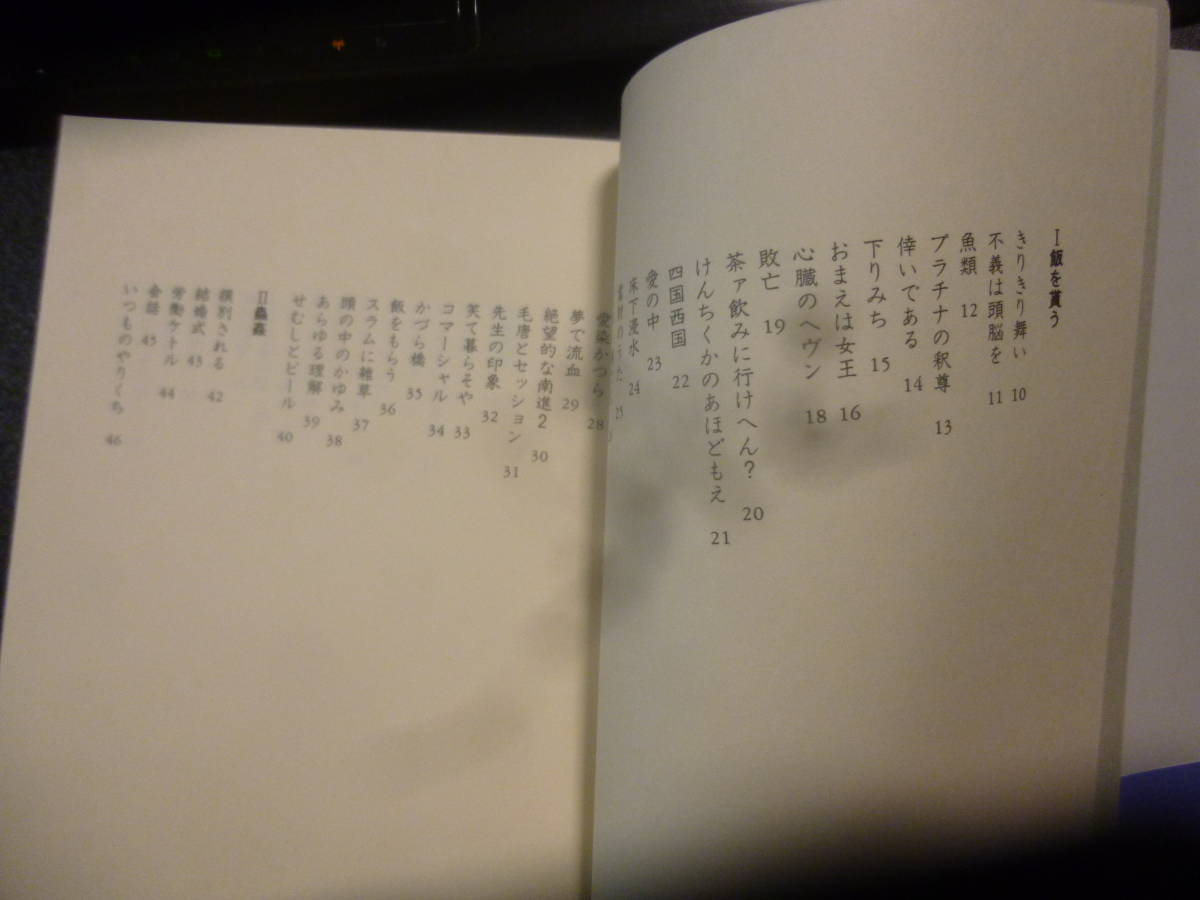 I 飯を貰う
きりきり舞い 10
不義は頭脳を 11
魚類 12
プラチナの釈尊 13
倖いである 14
下りみち 15
おまえは女王 16
心臓のヘヴン 18
敗亡 19
茶ァ飲みに行けへん? 20
けんちくかのあほどもえ 21
四国西国 22
愛の中 23
床下浸水 24
のうた 25
愛染かつら 28
夢で流血 29
絶望的な南進2 30
毛唐とセッション 31
先生の印象 32
笑て暮らそや 33
コマーシャル 34
かづら橋 35
飯をもらう 36
スラムに雑草 37
頭の中のかゆみ 38
あらゆる理解 39
せむしとビール 40
II
撰別される 42
結婚式 43
労働ケトル 44
会話 45
いつものやりくち 46